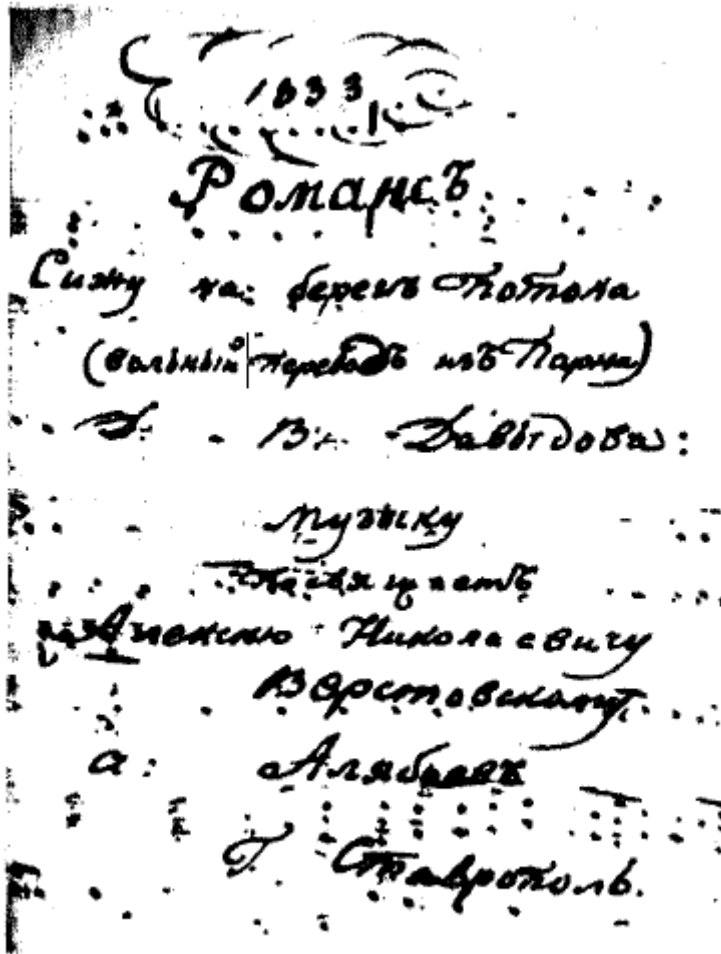 1833
Романсъ
Сижу на берегѣ потока
(вольный переводъ изъ Парни)
Д. В. Давыдова:
музыку
Посвящаетъ
Алексею Николаевичу
Верстовскому.
А: Алябьевъ
Г. Ставрополь.